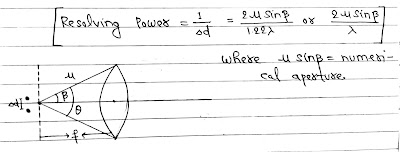 Resolving Power = 1/Δd = 2μ sinβ / 1.22λ or 2μ sinβ / λ
where μ sinβ = numeri-
cal aperture
μ
Δd β
θ
f